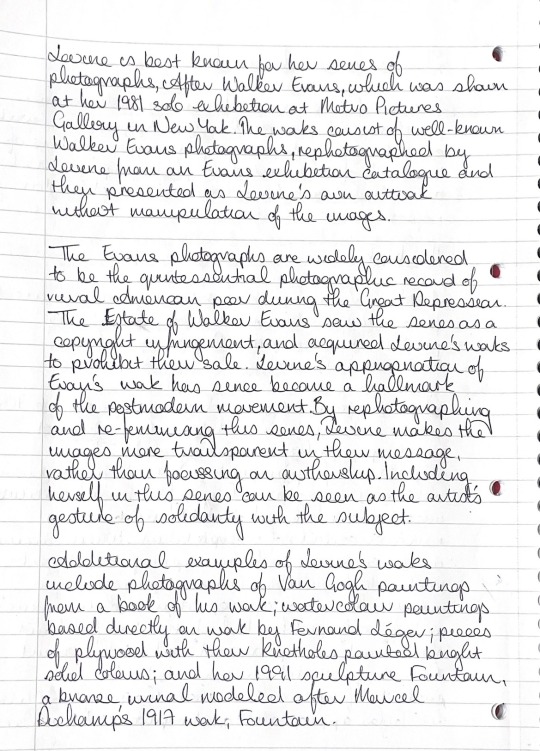 Levine is best known for her series of
photographs, After Walker Evans, which was shown
at her 1981 solo exhibition at Metro Pictures
Gallery in New York. The works consist of well-known
Walker Evans photographs, rephotographed by
Levine from an Evans exhibition catalogue and
then presented as Levine's own artwork
without manipulation of the images.
The Evans photographs are widely considered
to be the quintessential photographic record of
rural American poor during the Great Depression.
The Estate of Walker Evans saw the series as a
copyright infringement, and acquired Levine's works
to prohibit their sale. Levine's appropriation of
Evan's work has sence become a hallmark
of the postmodern movement. By rephotographing
and re-feminising this series, Levine makes the
images more transparent in their message,
rather than focussing on authorship. Including
herself in this series can be seen as the artist's
gesture of solidarity with the subject.
Additional examples of Levine's works
include photographs of Van Gogh paintings
from a book of his work; watercolour paintings
based directly on work by Fernand Léger; pieces
of plywood with their knotholes painted bright
solid colours; and her 1991 sculpture Fountain,
a bronze urinal modeled after Marcel
Duchamp's 1917 work, Fountain.